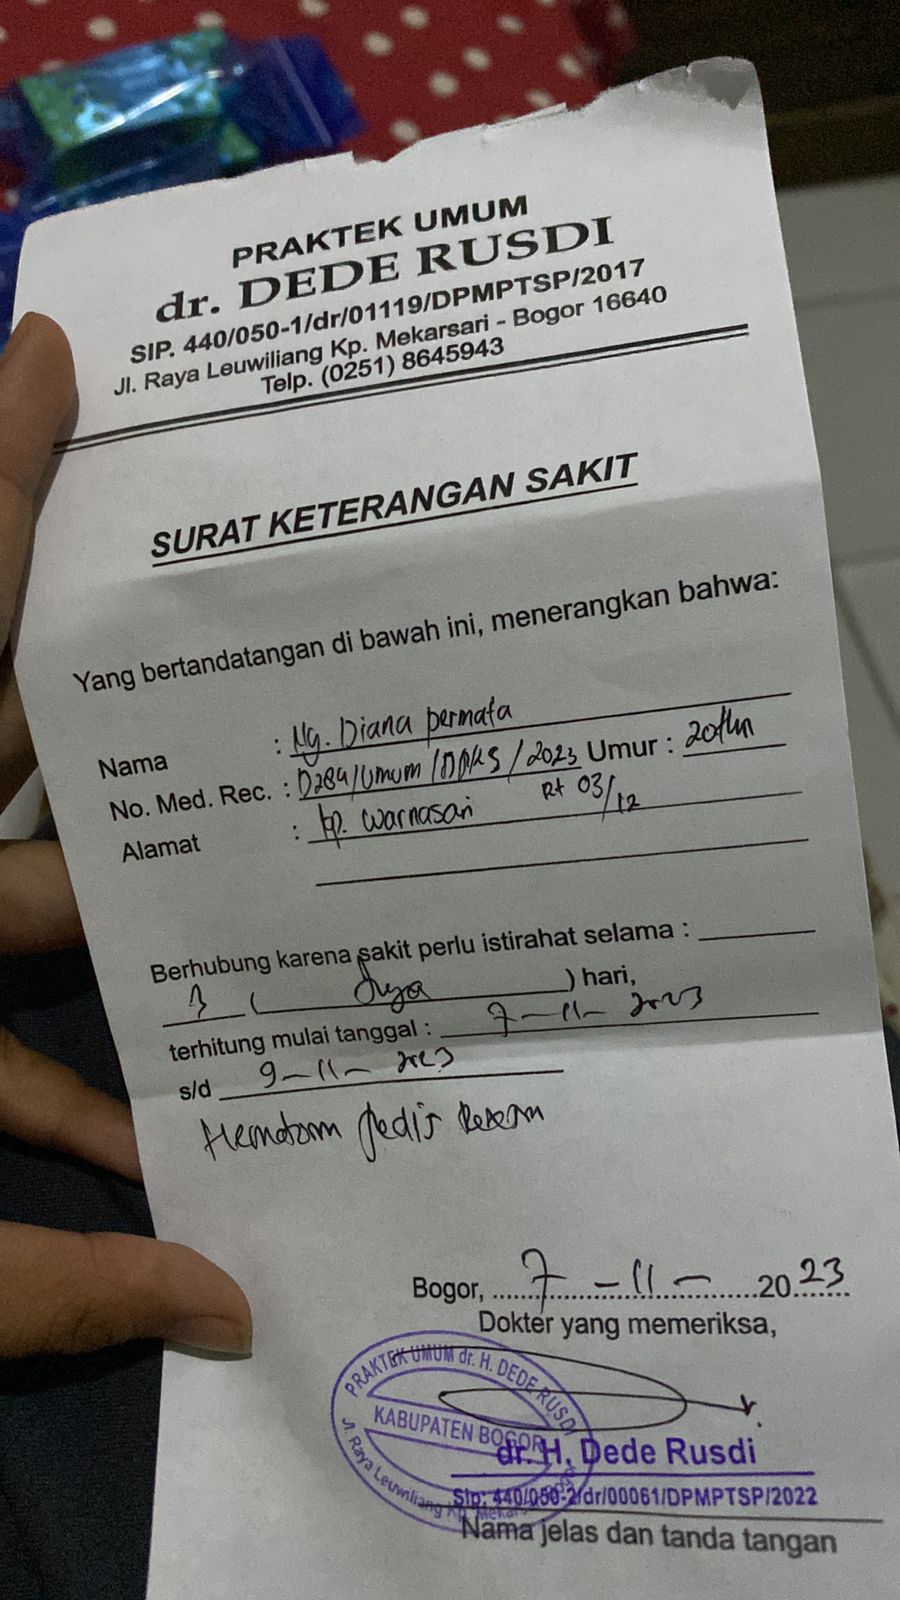 PRAKTEK UMUM
dr. DEDE RUSDI
SIP. 440/050-1/dr/01119/DPMPTSP/2017
Jl. Raya Leuwiliang Kp. Mekarsari - Bogor 16640
Telp. (0251) 8645943
SURAT KETERANGAN SAKIT
Yang bertandatangan di bawah ini, menerangkan bahwa:
Nama : Ng. Diana permata
No. Med. Rec. : D284/Umum/DDKS/2023 Umur : 20thn
Alamat : kp. Warnasari Rt 03/12
Berhubung karena sakit perlu istirahat selama :
3 ( ) hari,
terhitung mulai tanggal : 7-11-2023
s/d 9-11-2023
Hematom pedis
Bogor, 7-11-2023
Dokter yang memeriksa,
PRAKTEK UMUM dr. H. DEDE RUSDI
KABUPATEN BOGOR
Jl. Raya Leuwiliang Kp. Mekarsari
dr. H. Dede Rusdi
Sip: 440/050-2/dr/00061/DPMPTSP/2022
Nama jelas dan tanda tangan